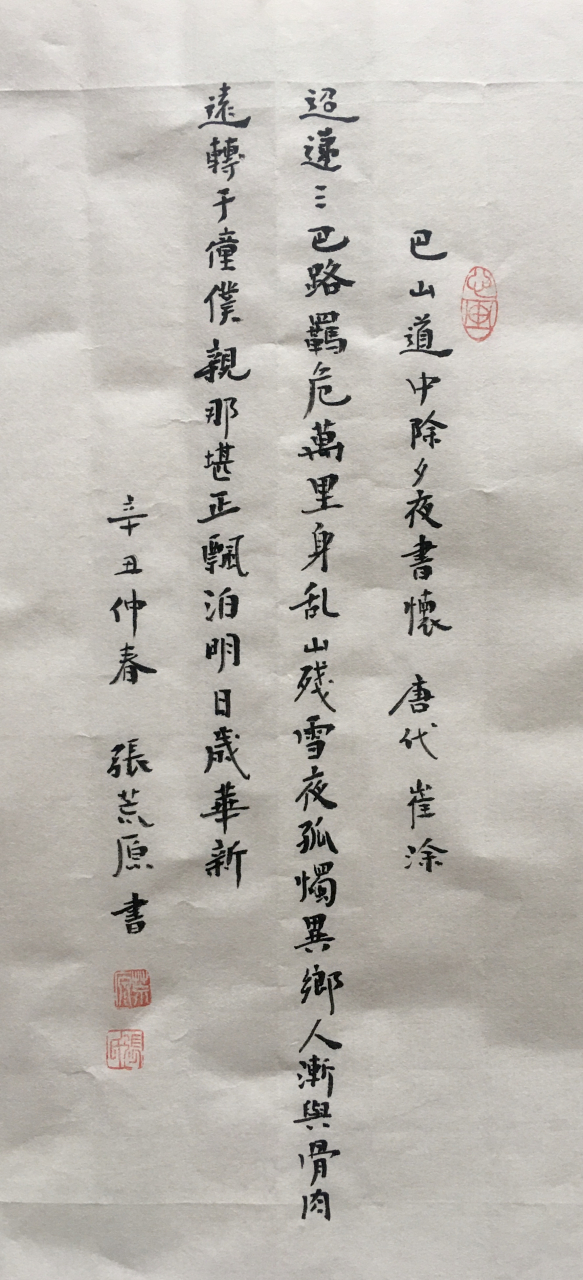 巴山道中除夕夜書懷 唐代 崔涂
迢遞三巴路羈危萬里身乱山殘雪夜孤燭異鄉人漸與骨肉
遠轉于僮僕親那堪正飄泊明日歲華新
辛丑仲春 張荒原書